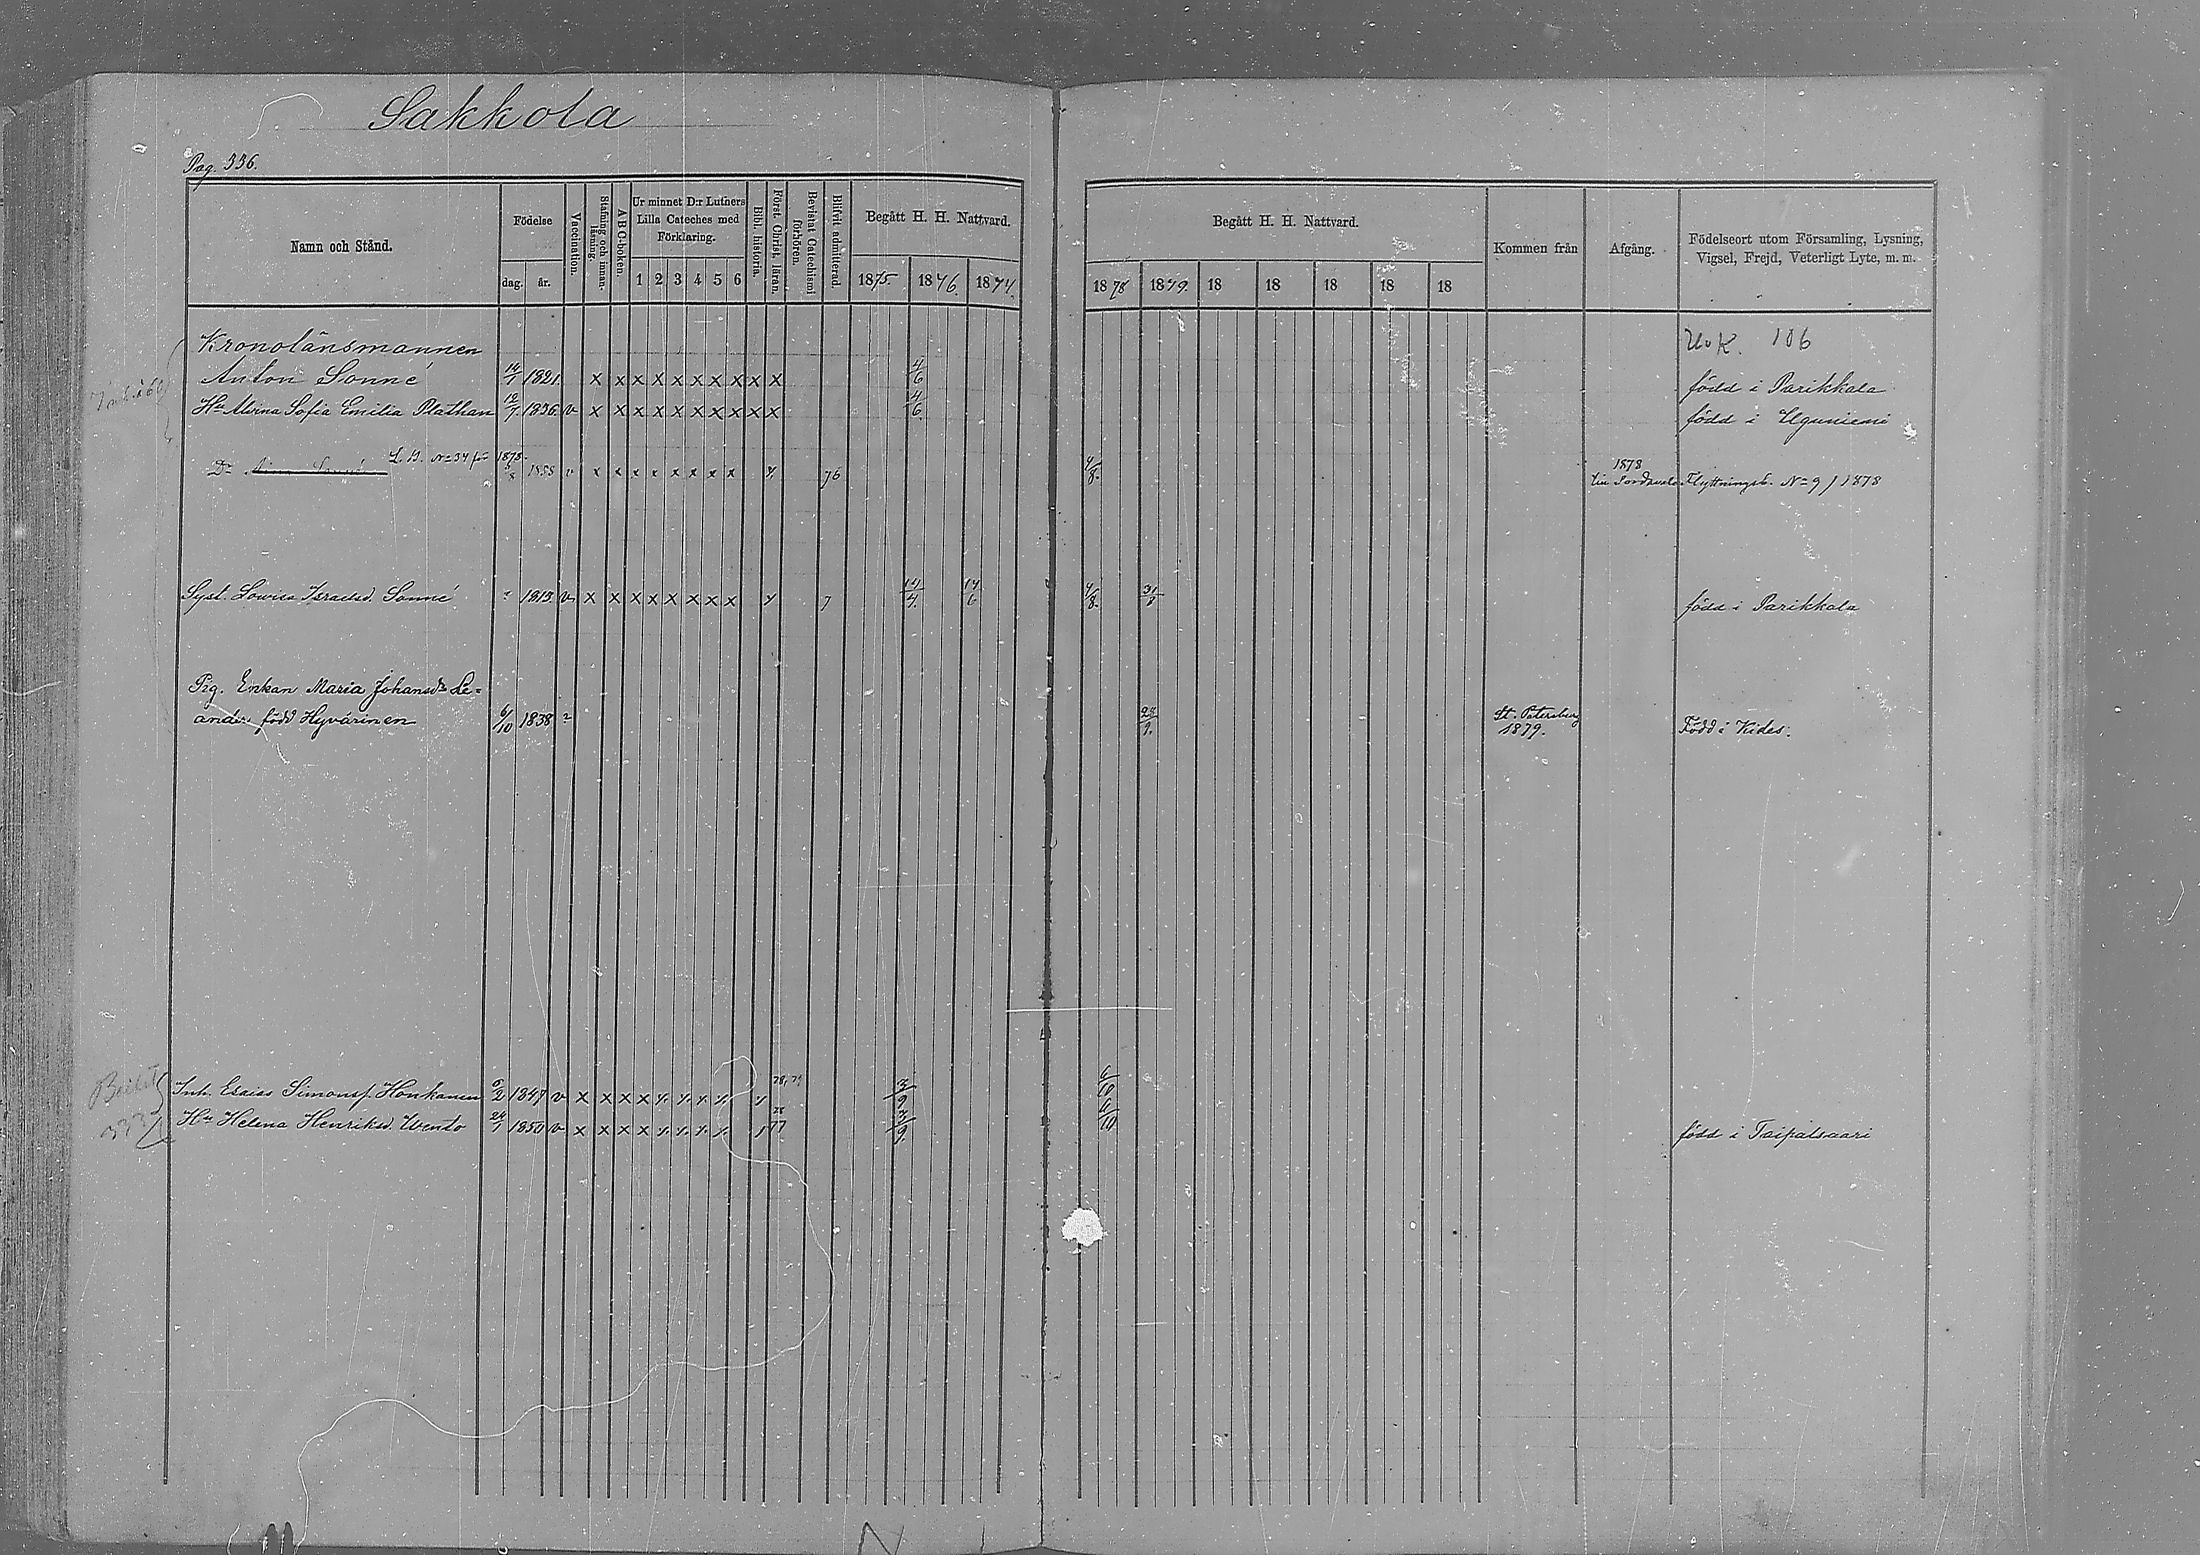 Sakkola
Pag. 336.
Namn och Stånd.
Födelse
dag. år.
Vaccination.
Stafning och innanläsning.
A B C-boken.
Ur minnet D:r Luthers
Lilla Cateches med
Förklaring.
1 2 3 4 5 6
Bibl. historia.
Först. Christ. läran.
Bevistat Catechismi förhören.
Blifvit admitterad.
Begått H. H. Nattvard.
1875. 1876. 1877.
Begått H. H. Nattvard.
1878 1879. 18 18 18 18 18
Kommen från
Afgång.
Födelseort utom Församling, Lysning,
Vigsel, Frejd, Veterligt Lyte, m. m.
Kronolänsmannen
106
Anton Sonné 1821. x x x x x x x x x x 4/6 född i Parikkala
Hu Alvina Sofia Emilia Plathan 12/7 1836 v x x x x x x x x x x 4/6 född i
L. B. No 34 för 1878.
Dr 1858 v x x x x x x x x 76 4/8. 1878
till Sordavala Flyttningsb. No 9 / 1878
Syst. Lowisa Israelsd. Sonné 1813 v x x x x x x x x 7 14/6 4/8. 31/8 född i Parikkala
Pig. Enkan Maria Johansdr Le=
ander född Hyvärinen 6/10 1838 28/9. St. Petersburg
1879. Född i Kides.
Inh. Esaias Simonsp. Honkanen 1847 v x x x x 78, 79 3/9 6/10
Hu Helena Henriksd. Wento 24/1 1850 v x x x x 78 77 3/9. 6/10 född i Taipalsaari